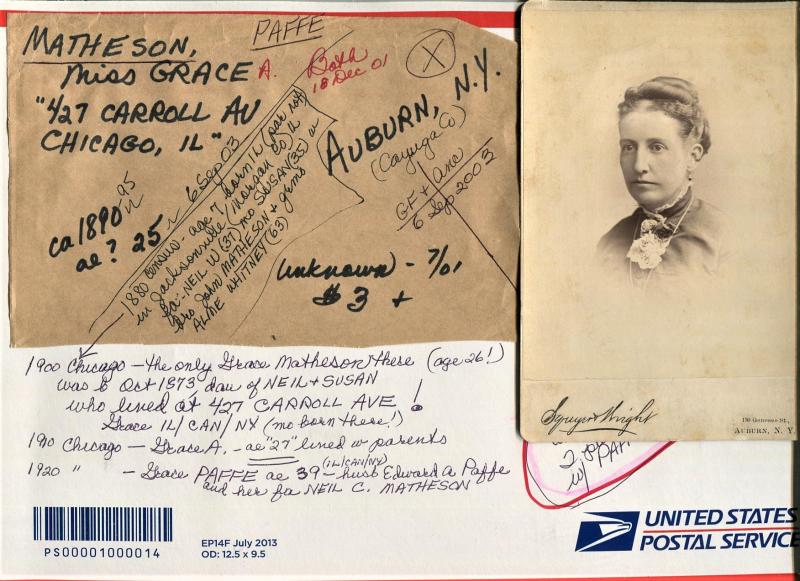 PAFFE
MATHESON,
Miss GRACE A.
Both
18 Dec 01
X
"427 CARROLL AV
CHICAGO, IL"
AUBURN, N.Y.
(Cayuga Co)
GF + anc
6 Sep 2003
ca 1890
95
ae? 25
6 Sep 03
1880 census - age 7 born IL (par not)
in Jacksonville/Morgan Co, IL
fa - NEIL W (37) mo SUSAN (35)
bro John MATHESON + grmo
ALME WHITNEY (63)
unknown - 7/01
$3 +
1900 Chicago - the only Grace Matheson there (age 26!)
was b Oct 1873, dau of NEIL + SUSAN
who lived at 427 CARROLL AVE!
Grace IL/CAN/NY (mo born there!)
1910 Chicago - Grace A. - ae "27" lived w parents
(IL/CAN/NY)
1920 " - Grace PAFFE ae 39 - husb Edward A Paffe
and her fa NEIL C. MATHESON
Squyer & Wright
130 Genesee St.,
AUBURN, N. Y.
w/ PAF
PS00001000014
EP14F July 2013
OD: 12.5 x 9.5
UNITED STATES
POSTAL SERVICE